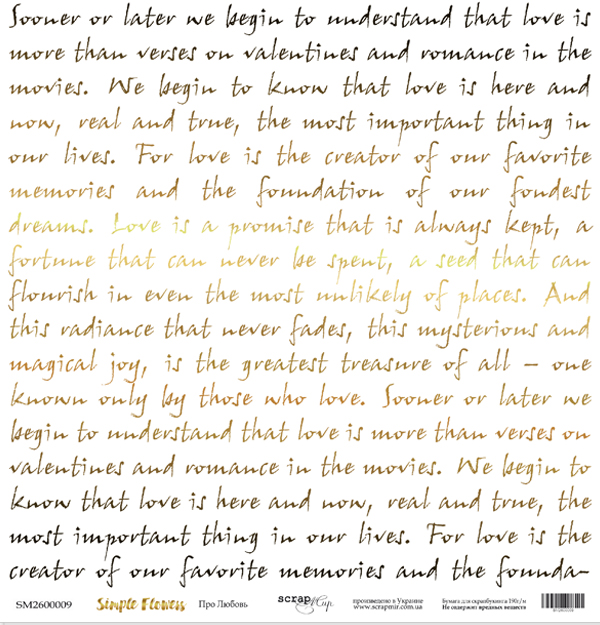 Sooner or later we begin to understand that love is
more than verses on valentines and romance in the
movies. We begin to know that love is here and
now, real and true, the most important thing in
our lives. For love is the creator of our favorite
memories and the foundation of our fondest
dreams. Love is a promise that is always kept, a
fortune that can never be spent, a seed that can
flourish in even the most unlikely of places. And
this radiance that never fades, this mysterious and
magical joy, is the greatest treasure of all – one
known only by those who love. Sooner or later we
begin to understand that love is more than verses on
valentines and romance in the movies. We begin to
know that love is here and now, real and true, the
most important thing in our lives. For love is the
creator of our favorite memories and the founda-
SM2600009 Simple Flowers Про Любовь scrapmir Cup произведено в Украине Бумага для скрапбукинга 190г/м
www.scrapmir.com.ua Не содержит вредных веществ